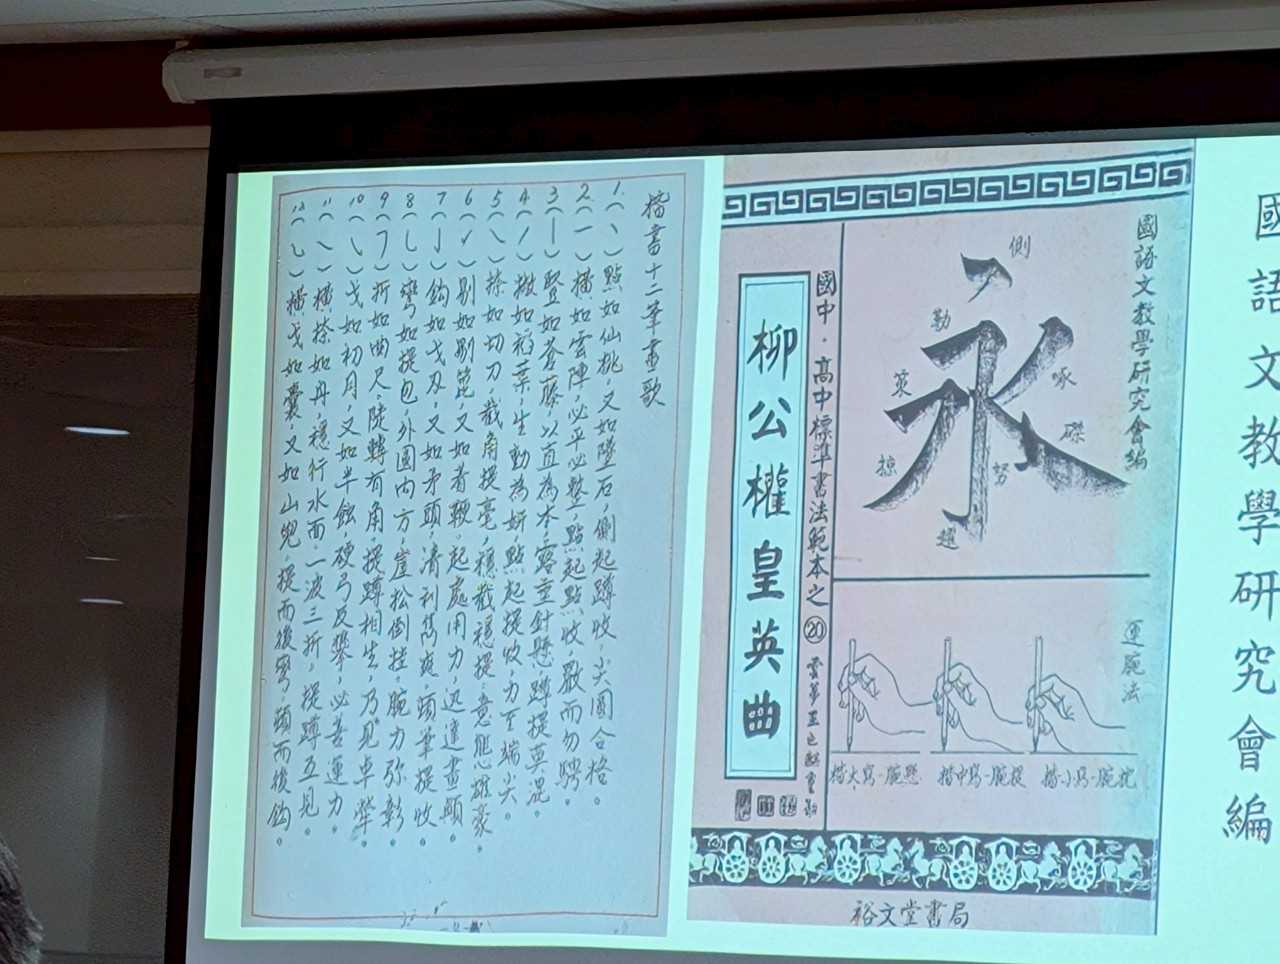 國語文教學研究會編
國語文教學研究會編
側
勒
策
啄
掠
磔
努
趯
運腕法
楷大寫-腕懸
楷中寫-腕提
楷小寫-腕枕
國中·高中標準書法範本之⑳
柳公權皇英曲
裕文堂書局
楷書十二筆畫歌
1.(丶)點如仙桃,又如墜石,側起蹲收,尖圓合格。
2.(一)橫如雲陣,必平必整,點起點收,嚴而勿騁。
3(丨)豎如蒼藤,以直為本,露垂針懸,蹲提莫混。
4.(丿)撇如稻葉,生動為妍,點起提收,力至端尖。
5(㇏)捺如切刀,截角提毫,穩截穩提,意態雄豪。
6.(✓)剔如剔笓,又如著鞭,起處用力,迅達畫顛。
7(亅)鈎如戈及,又如矛頭,清利雋爽,頭筆提收
8(乚)彎如提包,外圓內方,崖松倒挂,腕力弥彰。
9(㇕)折如曲尺,陡轉有角,提蹲相生,乃見卓犖。
10(㇂)戈如初月,又如半蝕,硬弓反攀,必善運力。
11(㇏)橫捺如丹,穩行水面,一波三折,提蹲互見。
12(㇃)橫戈如囊,又如山兜,提而後彎,頭而後鈎。